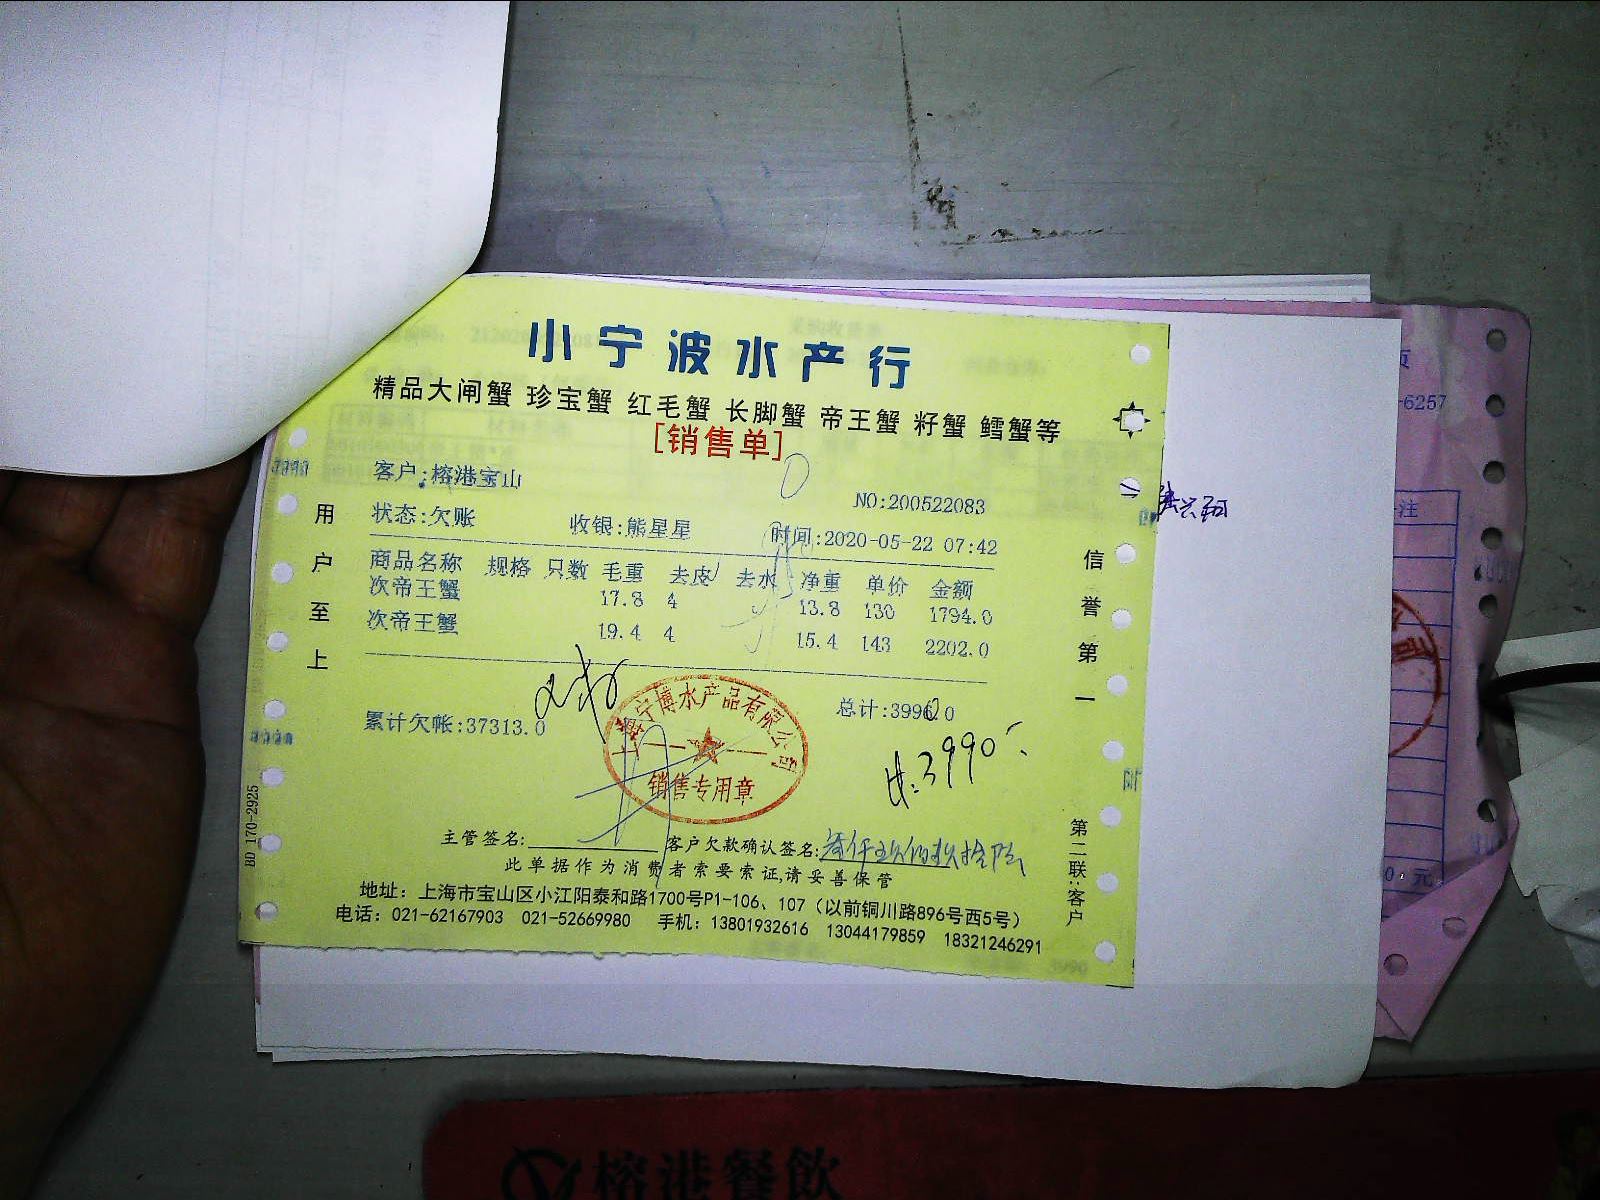 小宁波水产行
精品大闸蟹 珍宝蟹 红毛蟹 长脚蟹 帝王蟹 籽蟹 鳕蟹等
[销售单]
客户:榕港宝山
NO:200522083
状态:欠账 收银:熊星星 时间:2020-05-22 07:42
商品名称 规格 只数 毛重 去皮 去水 净重 单价 金额
次帝王蟹 17.8 4 13.8 130 1794.0
次帝王蟹 19.4 4 15.4 143 2202.0
累计欠帐:37313.0 总计:3996.0
上海宁博水产品有限公司
销售专用章
3990
主管签名: 客户欠款确认签名:
此单据作为消费者索要索证,请妥善保管
地址：上海市宝山区小江阳泰和路1700号P1-106、107（以前铜川路896号西5号）
电话：021-62167903 021-52669980 手机：13801932616 13044179859 18321246291
用户至上
信誉第一
第二联:客户
BD 170-2925
-6257
注
元
榕港餐飲